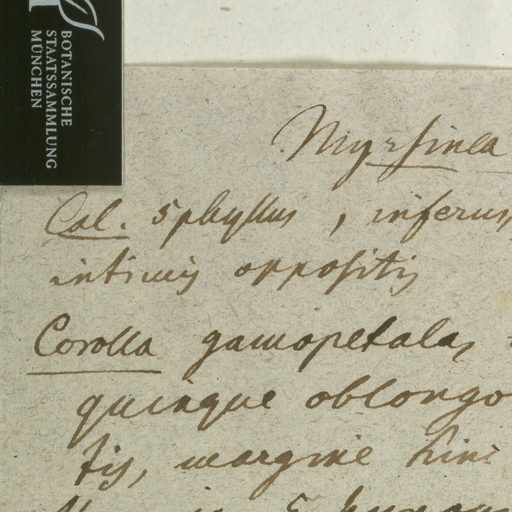 BOTANISCHE
STAATSSAMMLUNG
MÜNCHEN
Myrsinea
Cal. 5phyllus, inferus
intimis oppositis
Corolla gamopetala,
quinque oblongo
tis, margine